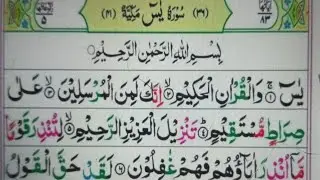 (۳۶) سُوْرَةُ يٰسٓ مَكِّيَّةٌ (۴۱)
۵ ۸۳
بِسْمِ اللهِ الرَّحْمٰنِ الرَّحِيْمِ
يٰسٓ ۚ۱ وَالْقُرْاٰنِ الْحَكِيْمِ ۙ۲ اِنَّكَ لَمِنَ الْمُرْسَلِيْنَ ۙ۳ عَلٰى
صِرَاطٍ مُّسْتَقِيْمٍ ؕ۴ تَنْزِيْلَ الْعَزِيْزِ الرَّحِيْمِ ۙ۵ لِتُنْذِرَ قَوْمًا
مَّاۤ اُنْذِرَ اٰبَآؤُهُمْ فَهُمْ غٰفِلُوْنَ ۶ لَقَدْ حَقَّ الْقَوْلُ